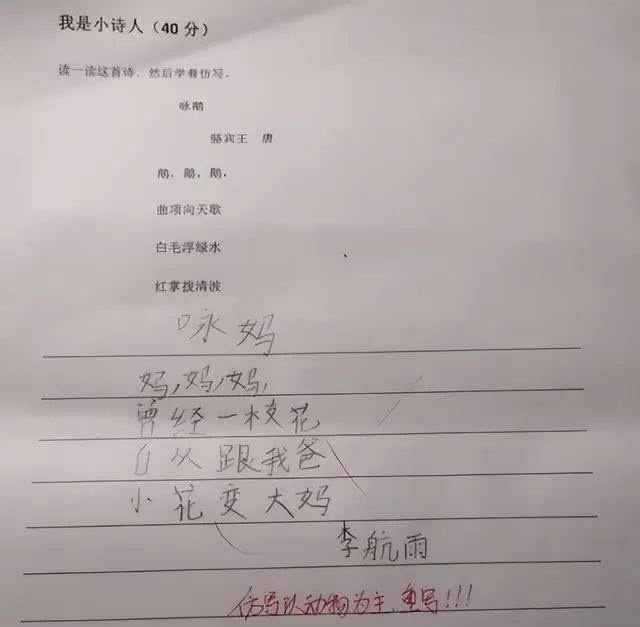 我是小诗人（40 分）
读一读这首诗，然后学着仿写。
咏鹅
骆宾王 唐
鹅，鹅，鹅，
曲项向天歌
白毛浮绿水
红掌拨清波
咏妈
妈，妈，妈，
曾经一枝花
自从跟我爸
小花变大妈
李航雨
仿写以动物为主，重写！！！